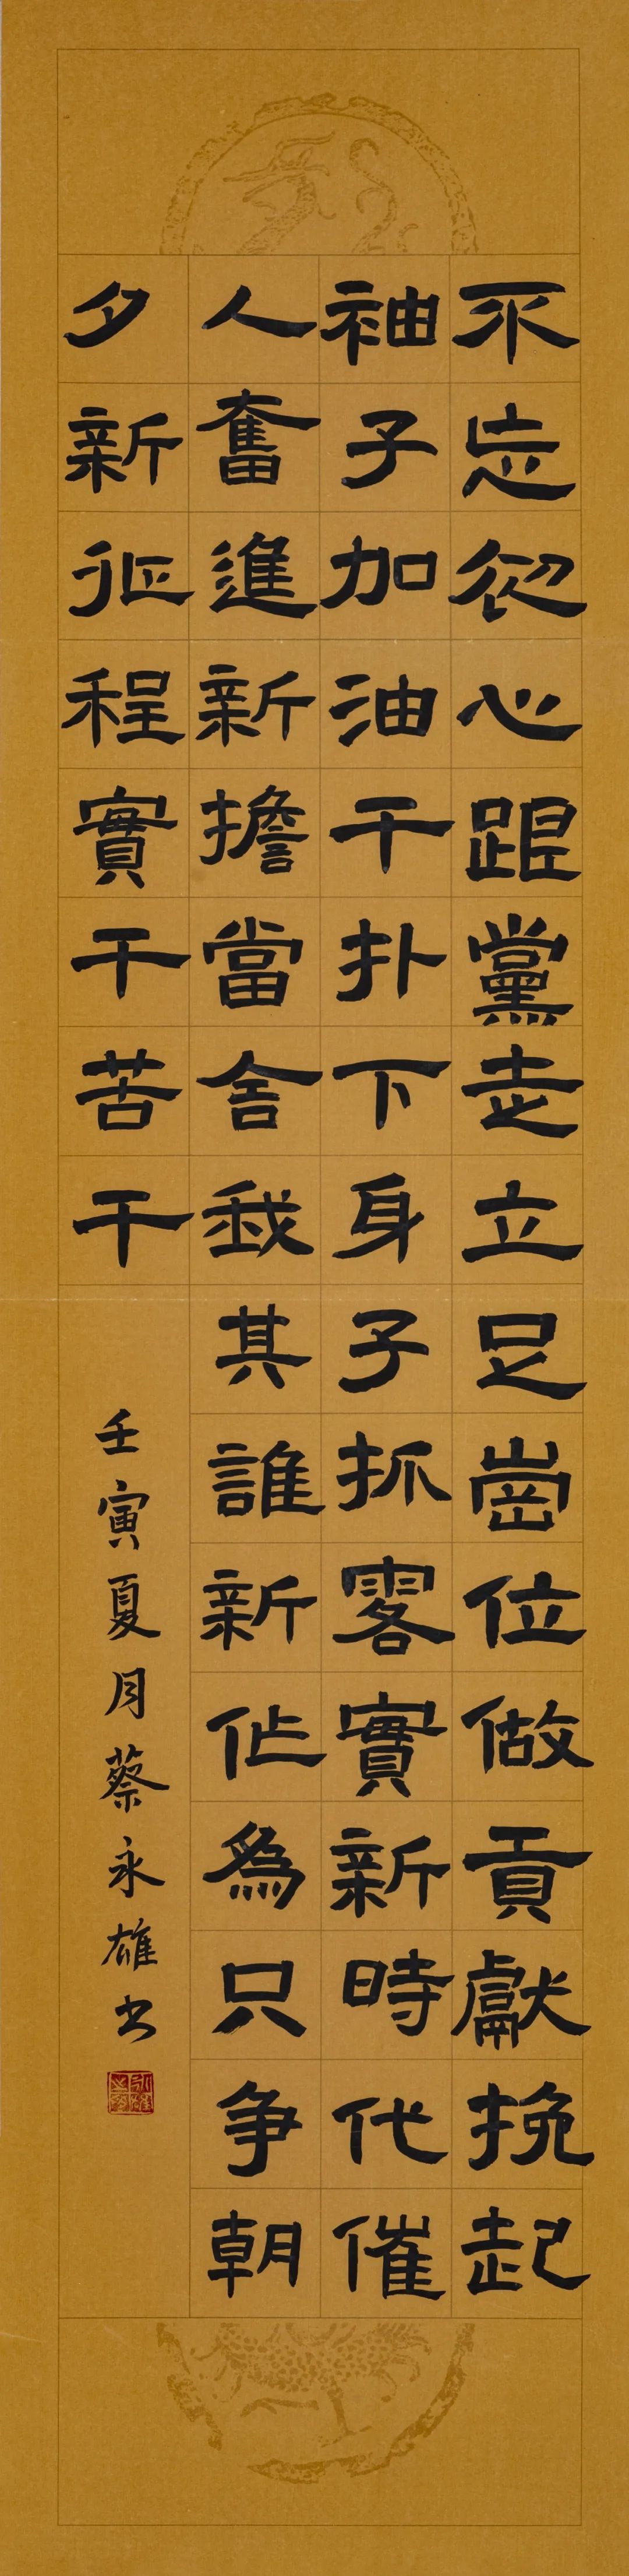 不忘初心跟黨走立足崗位做貢獻挽起
袖子加油干扑下身子抓落實新時代催
人奮進新擔當舍我其誰新作為只争朝
夕新征程實干苦干
壬寅夏月蔡永雄書